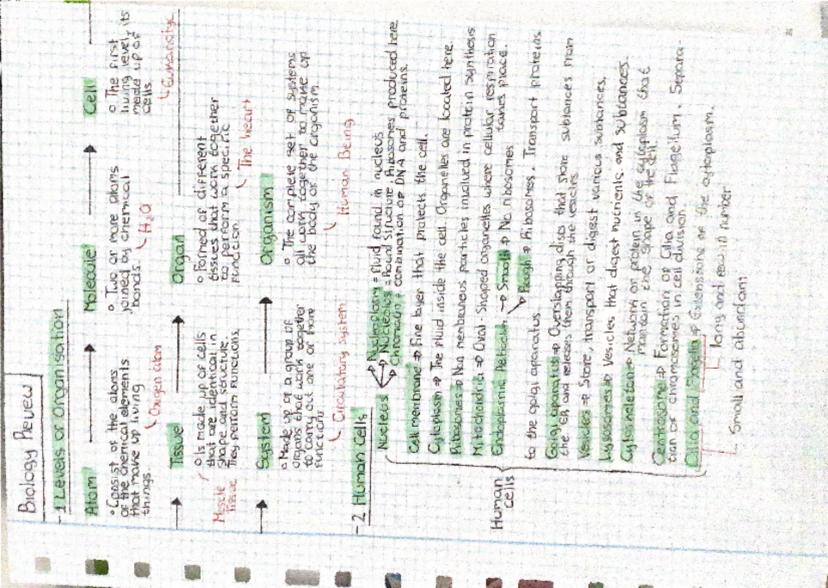 Biology Review
-1 Levels of Organisation
Atom
• Consist of the atoms
of the chemical elements
that make up living
things.
Oxigen atom
Molecule
• Two or more atoms
joined by chemical
bonds.
H₂O
Cell
• The first
living level, its
made up of
cells.
Tissue
• Is made up of cells
that are identical in
shape and structure.
They perform functions.
Muscle
tissue
Organ
• Formed of different
tissues that work together
to perform a specific
function.
The heart
System
• Made up of a group of
organs that work together
to carry out one or more
function.
Circulatory system
Organism
• The complete set of systems
all work together to make up
the body of the organism
Human Being
-2 Human Cells
Nucleus
Nucleoplasm = Fluid found in nucleus
Nucleolus = Round structure Ribosomes produced here
Chromatin = combination of DNA and proteins.
Cell membrane ⇒ Fine layer that protects the cell.
Cytoplasm ⇒ The fluid inside the cell. Organelles are located here.
Ribosomes ⇒ Non membranous particles involved in protein synthesis
Mitochondria ⇒ Oval-Shaped organelles where cellular respiration
takes place.
Endoplasmic Reticulum → Smooth ⇒ No ribosomes
Rough ⇒ Ribosomes. Transport proteins
to the golgi apparatus
Golgi apparatus ⇒ Overlapping discs that store substances from
the ER, and releases them through the vesicles.
Vesicles ⇒ Store, transport or digest various substances.
Lysosomes ⇒ Vesicles that digest nutrients and substances.
Cytoskeleton ⇒ Network of protein in the cytoplasm that
maintain the shape of the cell
Centrosome ⇒ Formation of Cilia and Flagellum. Separa-
tion of chromosomes in cell division
Cilia and flagella ⇒ Extensions of the cytoplasm.
long and few in number
Small and abundant
Human
cells